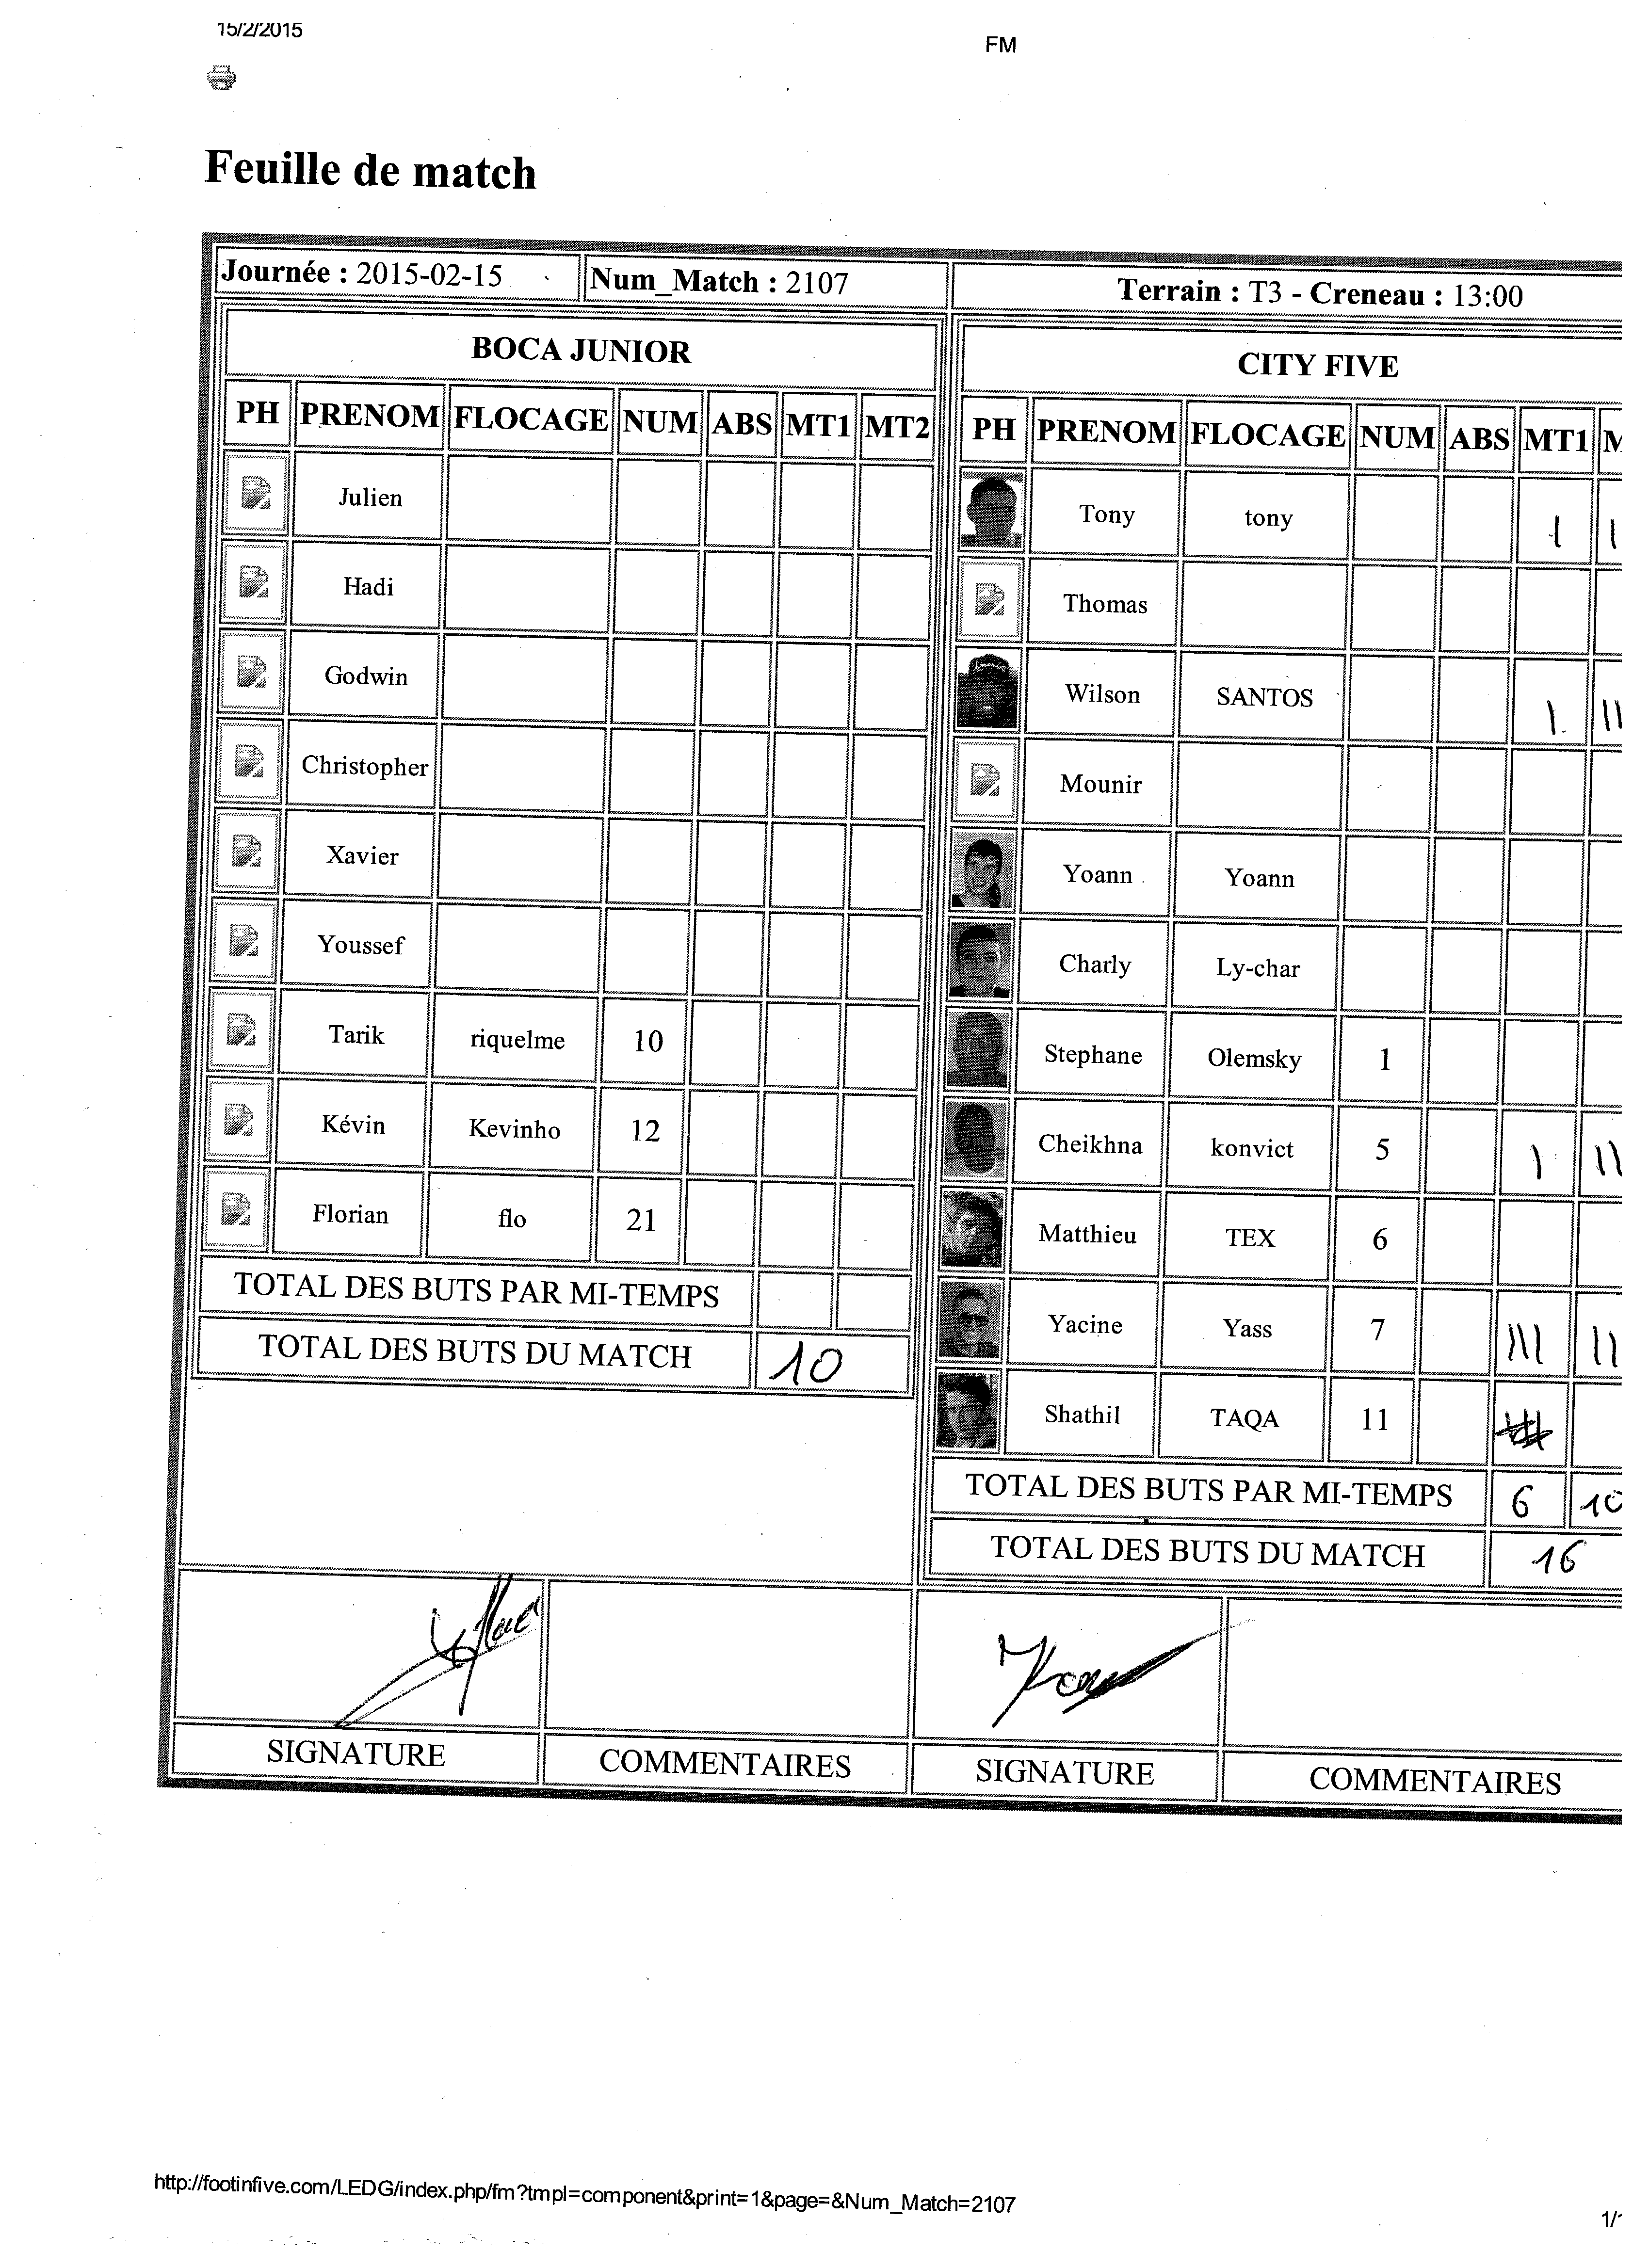 15/2/2015
FM
Feuille de match
Journée : 2015-02-15 Num_Match : 2107 Terrain : T3 - Creneau : 13:00
BOCA JUNIOR
PH PRENOM FLOCAGE NUM ABS MT1 MT2
Julien
Hadi
Godwin
Christopher
Xavier
Youssef
Tarik riquelme 10
Kévin Kevinho 12
Florian flo 21
TOTAL DES BUTS PAR MI-TEMPS
TOTAL DES BUTS DU MATCH 10
CITY FIVE
PH PRENOM FLOCAGE NUM ABS MT1 M
Tony tony | |
Thomas
Wilson SANTOS | ||
Mounir
Yoann Yoann
Charly Ly-char
Stephane Olemsky 1
Cheikhna konvict 5 | ||
Matthieu TEX 6
Yacine Yass 7 ||| ||
Shathil TAQA 11
TOTAL DES BUTS PAR MI-TEMPS 6 10
TOTAL DES BUTS DU MATCH 16
SIGNATURE COMMENTAIRES SIGNATURE COMMENTAIRES
http://footinfive.com/LEDG/index.php/fm?tmpl=component&print=1&page=&Num_Match=2107
1/